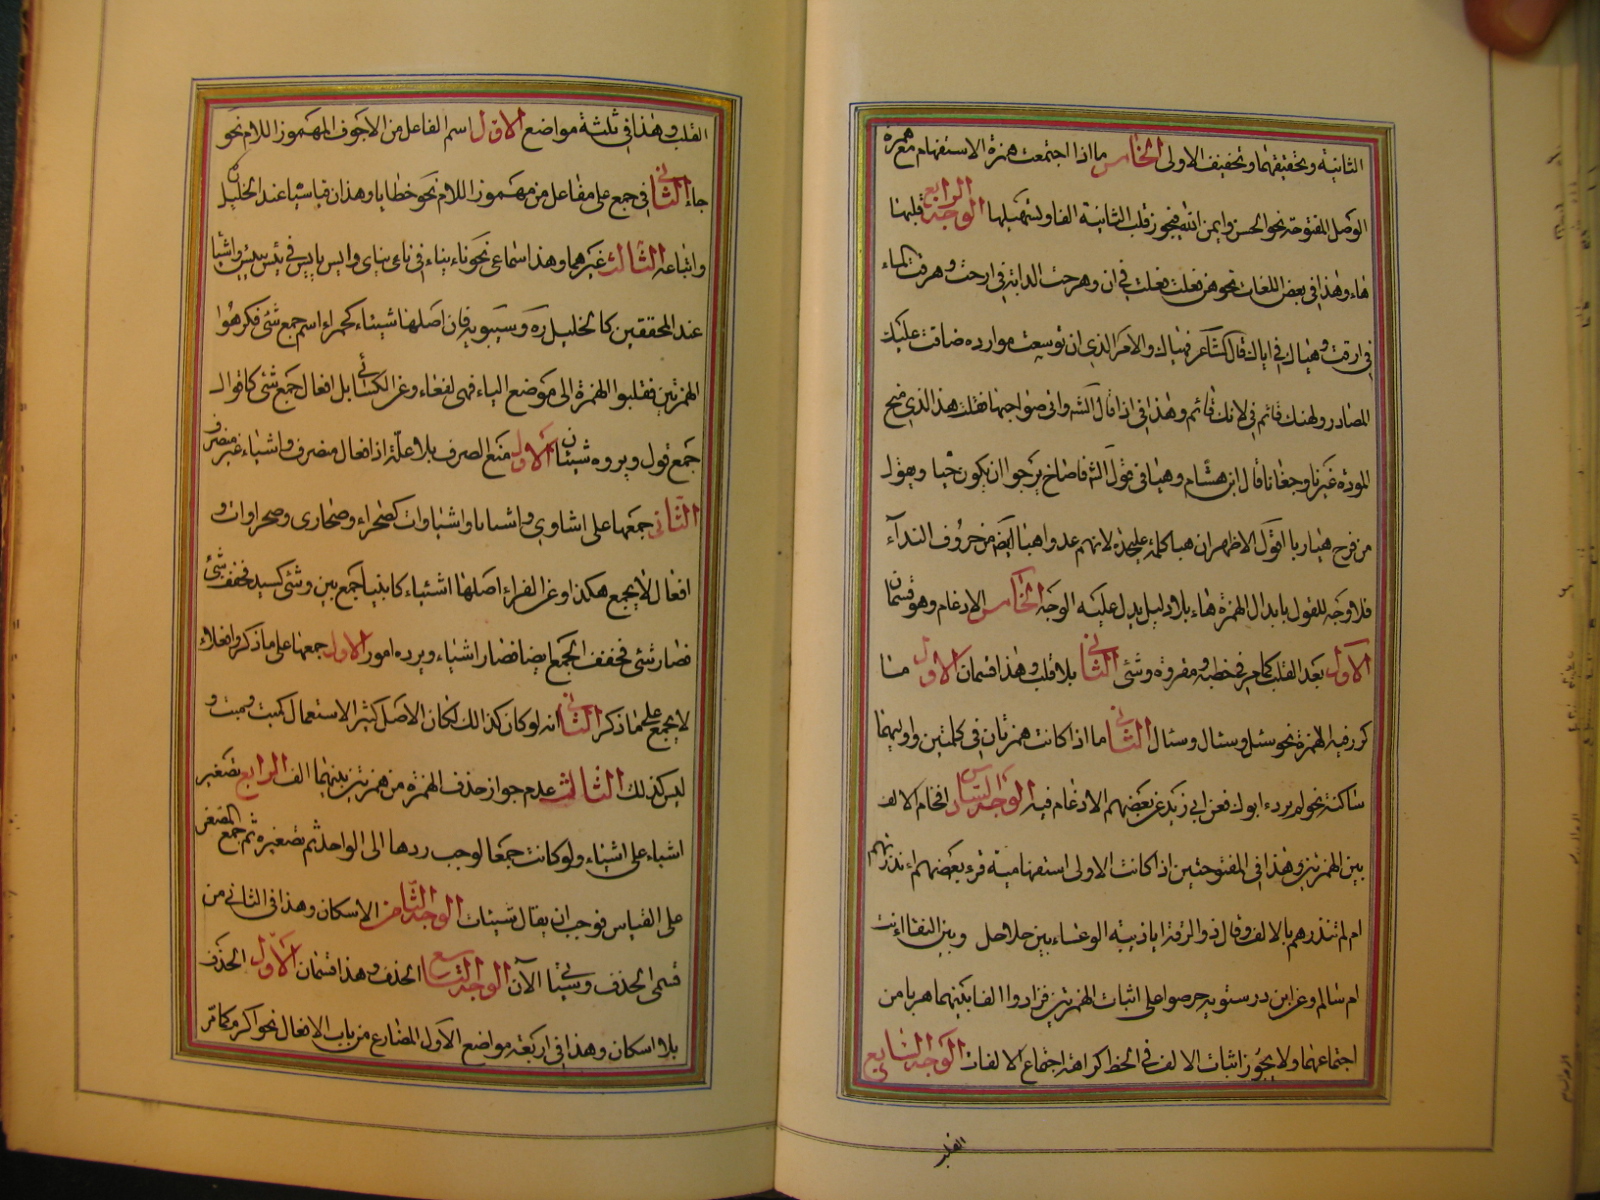 الثانية وتحقيقهما وتخفيف الاولى الخامس ما اذا اجتمعت همزة الاستفهام مع همزة
الوصل المفتوحة نحو الحسن وايمن الله فيجوز قلب الثانية الفا وتسهيلها الوجه الرابع قلبها
هاء وهذا في بعض اللغات نحو هن فعلت فعلت في ان وهرحت الدابة في ارحت وهرقت الماء
في ارقت وهياك في اياك قال الشاعر فهياك والامر الذي ان توسعت موارده ضاقت عليك
المصادر ولهنك قائم في لانك قائم وهذا في اذا قال الشه واتى صواحبها فقلن هذا الذي منح
المودة غيرنا وجفانا قال ابن هشام وهيا في قول الشه فاصاخ يرجو ان يكون حيا ويقول
من فرح هيا ربا اقول الاظهر ان هيا كلمة عليحدة لانهم عدوا هيا ايضا من حروف النداء
فلا وجه للقول بابدال الهمزة هاء بلا دليل يدل عليه الوجه الخامس الادغام وهو قسمان
الاول بعد القلب كما مر في خطية ومقروة وشئ الثاني بلا قلب وهذا قسمان الاول ما
كرر فيه الهمزة نحو سئل وسئال وسئال الثاني ما اذا كانت همزتان في كلمتين واوليهما
ساكنة نحو لم يردء ابوك فعن ابي زيد عن بعضهم الادغام فيه الوجه السادس اقحام الالف
بين الهمزتين وهذا في المفتوحتين اذا كانت الاولى استفهامية قرء بعضهم اءنذرتهم
ام لم تنذرهم بالالف وقال ذو الرمة ايا ذبية الوعساء بين حلاحل وبين النقا اانت
ام سالم وعن ابن درستويه حرصوا على اثبات الهمزتين فزادوا الفا بينهما هربا من
اجتماعهما ولا يجوز اثبات الالف في الخط كراهة اجتماع الالفات الوجه السابع
القلب
القلب وهذا في ثلثة مواضع الاول اسم الفاعل من الاجوف المهموز اللام نحو
جاء الثاني في جمع على مفاعل من مهموز اللام نحو خطايا وهذان قياسيان عند الخليل
واتباعه الثالث غيرهما وهذا سماعي نحو ناء يناء في نأى ينأى وايس يايس في يئس ييئس واشياء
عند المحققين كالخليل ره وسيبويه فان اصلها شيئاء كحمراء اسم جمع شئ فكرهوا
الهمزتين فقلبوا الهمزة الى موضع الياء فهي لفعاء وعن الكسائي بل افعال جمع شئ كاقوال
جمع قول ويرده شيئان الاول منع الصرف بلا علة اذ افعال منصرف واشياء غير منصرف و
الثاني جمعها على اشاوي واشايا واشياوات كصحراء وصحارى وصحراوات و
افعال لا يجمع هكذا وعن الفراء اصلها اشئياء كابنياء جمع بين وشئ كسيد فخفف شئ
فصار شئ فخفف الجمع ايضا فصار اشياء ويرده امور الاول جمعها على ما ذكر وافعلاء
لا يجمع على ما ذكر الثاني انه لو كان كذالك لكان الاصل كثير الاستعمال كميت وميت و
ليس كذلك الثالث عدم جواز حذف الهمزة من همزتين بينهما الف الرابع تصغير
اشياء على اشياء ولو كانت جمعا لوجب ردها الى الواحد ثم تصغيره ثم جمع المصغر
على القياس فوجب ان يقال شييئات الوجه الثامن الاسكان وهذا في الثاني من
قسمي الحذف وسيأتي الآن الوجه التاسع الحذف وهذا قسمان الاول الحذف
بلا اسكان وهذا في اربعة مواضع الاول المضارع من باب الافعال نحو اكرم كما مر